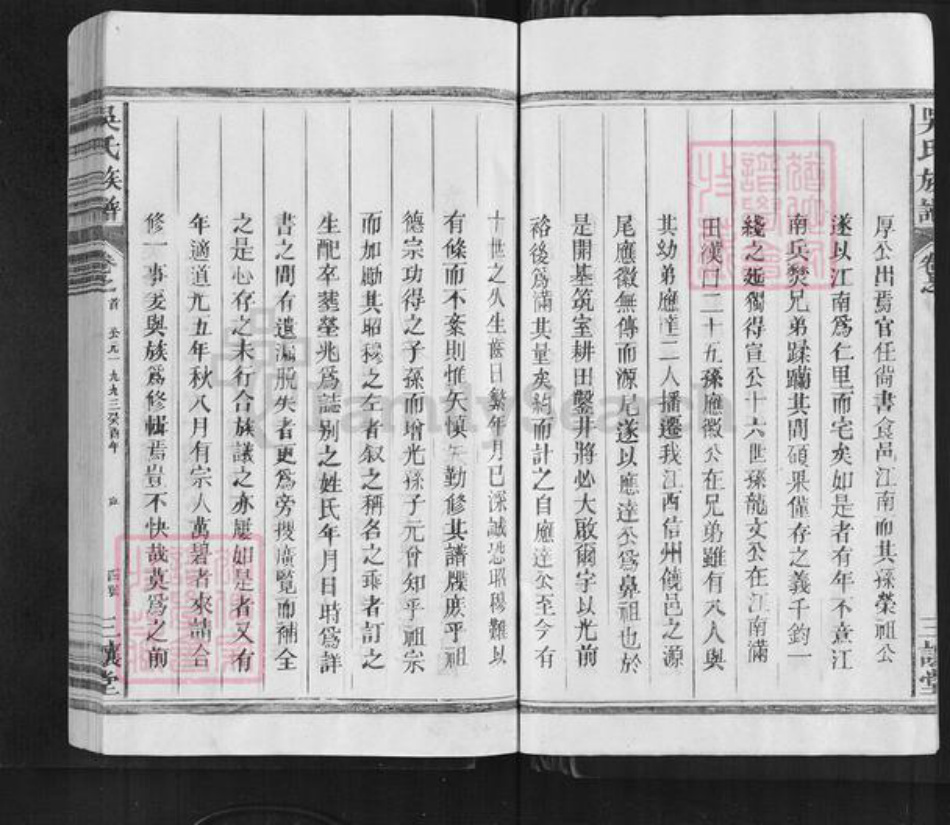 吳氏族譜 卷之 三讓堂
厚公出焉官任尚書食邑江南而其孫榮祖公
遂以江南爲仁里而宅矣如是者有年不意江
南兵燹兄弟蹂躪其間碩果僅存之義千鈞一
綫之延獨得宣公十六世孫龍文公在江南滿
田漢口二十五孫應徽公在兄弟雖有八人與
其幼弟應達二人播遷我江西信州饒邑之源
尾應徽無傳而源尾遂以應達公爲鼻祖也於
是開基筑室耕田鑿井將必大啟爾宇以光前
裕後爲滿其量矣約而計之自應達公至今有
十世之久生齒日繁年月已深誠恐昭穆難以
有條而不紊則惟矢慎矢勤修其譜牒庶乎祖
德宗功得之子孫而增光孫子元曾知乎祖宗
而加勵其昭穆之左者叙之稱名之乖者訂之
生配卒葬塋兆爲誌别之姓氏年月日時爲詳
書之間有遺漏脱失者更爲旁搜廣覽而補全
之是心存之未行合族議之亦屢如是者又有
年適道光五年秋八月有宗人萬碧者來請合
修一事爰與族爲修輯焉豈不快哉莫爲之前
吳氏族譜 卷之首 公元一九九三癸酉年 三讓堂
FamilySearch